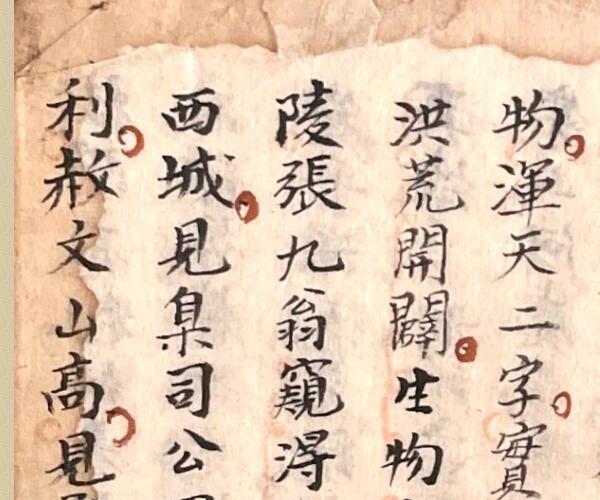 物渾天二字
洪荒開闢生物
陵張九翁窺得
西城見臬司公
利赦文山高見